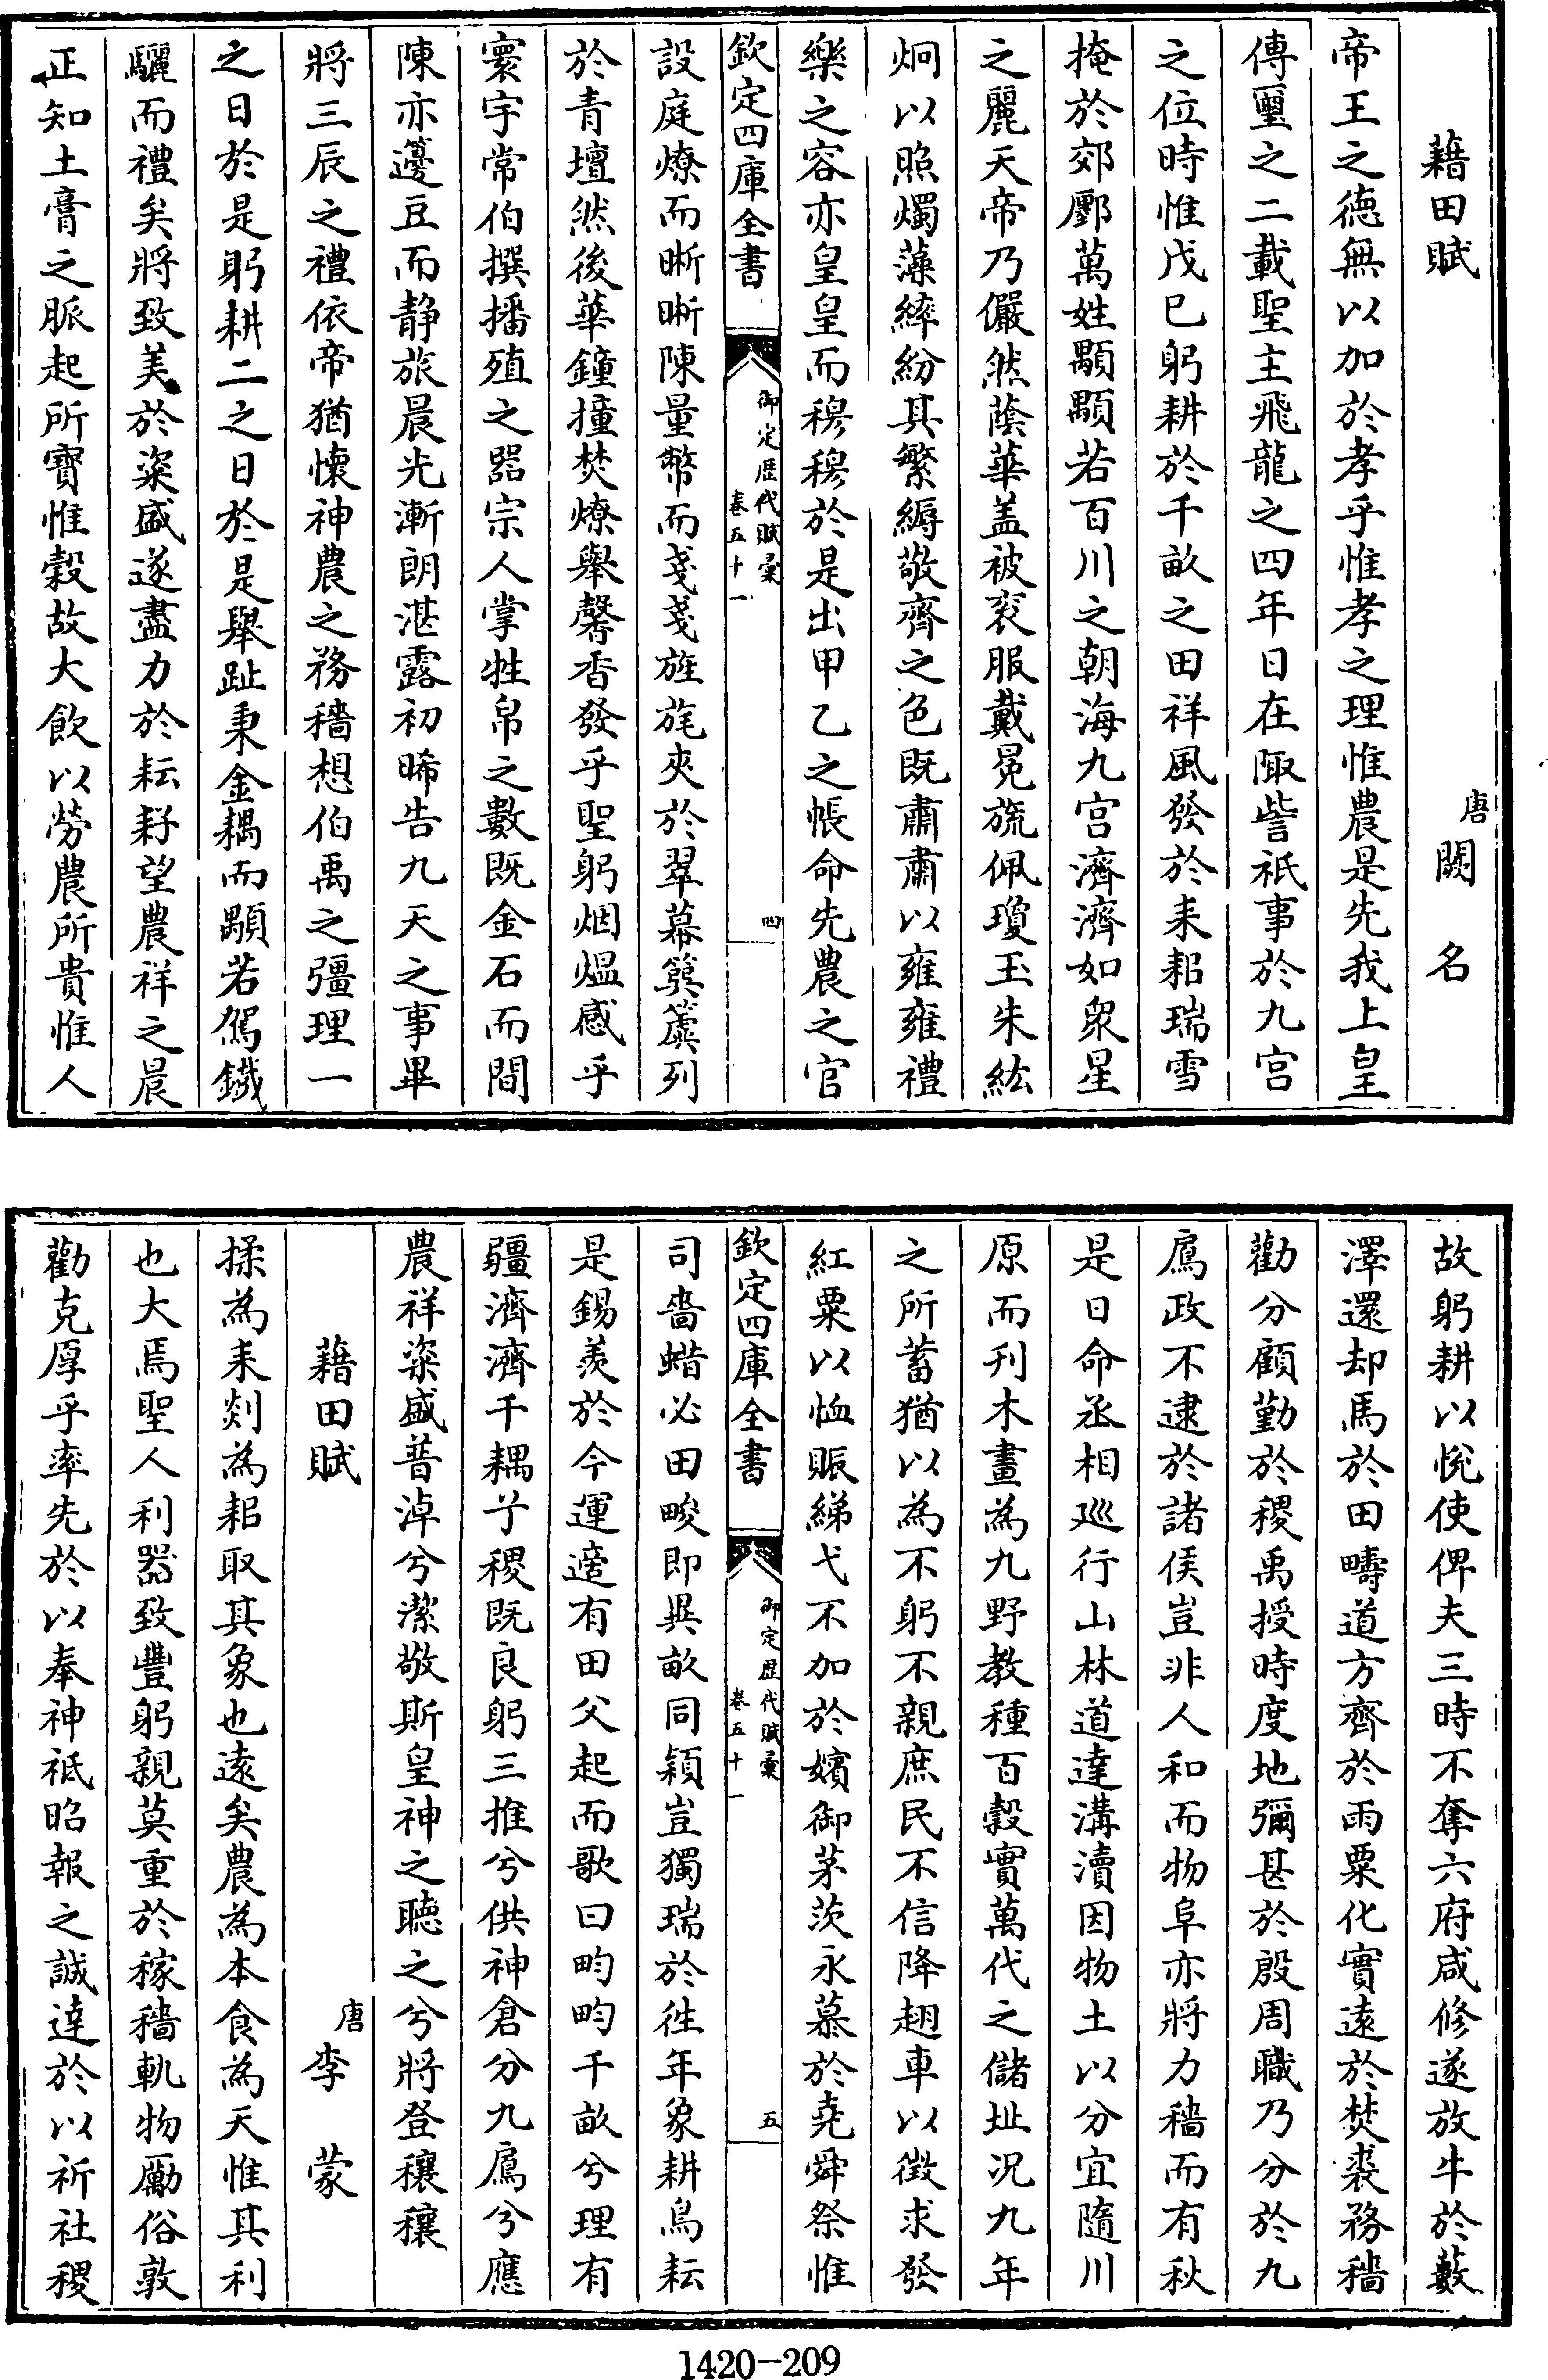 藉田賦
唐闕名
帝王之德無以加於孝乎惟孝之理惟農是先我上皇
傳璽之二載聖主飛龍之四年日在陬訾祇事於九宫
之位時惟戊巳躬耕於千畝之田祥風發於耒耜瑞雪
掩於郊酆萬姓顒顒若百川之朝海九宫濟濟如衆星
之麗天帝乃儼然蔭華盖被衮服戴冕旒佩瓊玉朱紘
炯以照燭藻繂紛其繁縟敬齊之色既肅肅以雍雍禮
樂之容亦皇皇而穆穆於是出甲乙之帳命先農之官
欽定四庫全書
御定歴代賦彙
卷五十一
四
設庭燎而晰晰陳量幣而戔戔旌旄夾於翠幕簨簴列
於青壇然後華鐘撞焚燎舉馨香發乎聖躬烟煴感乎
寰宇常伯撰播殖之器宗人掌牲帛之數既金石而間
陳亦籩豆而静旅晨光漸朗湛露初晞告九天之事畢
將三辰之禮依帝猶懷神農之務穡想伯禹之彊理一
之日於是躬耕二之日於是舉趾秉金耦而顒若駕鐵
驪而禮矣將致美於粢盛遂盡力於耘耔望農祥之晨
正知土膏之脈起所寶惟穀故大飲以勞農所貴惟人
故躬耕以悅使俾夫三時不奪六府咸修遂放牛於藪
澤還却馬於田疇道方齊於雨粟化實遠於焚裘務穡
勸分顧勤於稷禹授時度地彌甚於殷周職乃分於九
鳸政不逮於諸侯豈非人和而物阜亦將力穡而有秋
是日命丞相巡行山林道達溝瀆因物土以分宜隨川
原而刋木畫為九野教種百穀實萬代之儲㘰况九年
之所蓄猶以為不躬不親庶民不信降趐車以徴求發
紅粟以恤賑綈弋不加於嬪御茅茨永慕於堯舜祭惟
欽定四庫全書
御定歴代賦彙
卷五十一
五
司嗇蜡必田畯即異畝同穎豈獨瑞於徃年象耕鳥耘
是錫羨於今運適有田父起而歌曰畇畇千畝兮理有
疆濟濟千耦兮稷既良躬三推兮供神倉分九鳸兮應
農祥粢盛普淖兮潔敬斯皇神之聽之兮將登穰穰
藉田賦
唐李蒙
揉為耒剡為耜取其象也遠矣農為本食為天惟其利
也大焉聖人利器致豐躬親莫重於稼穡軌物勵俗敦
勸克厚乎率先於以奉神祇昭報之誠達於以祈社稷
1420-209